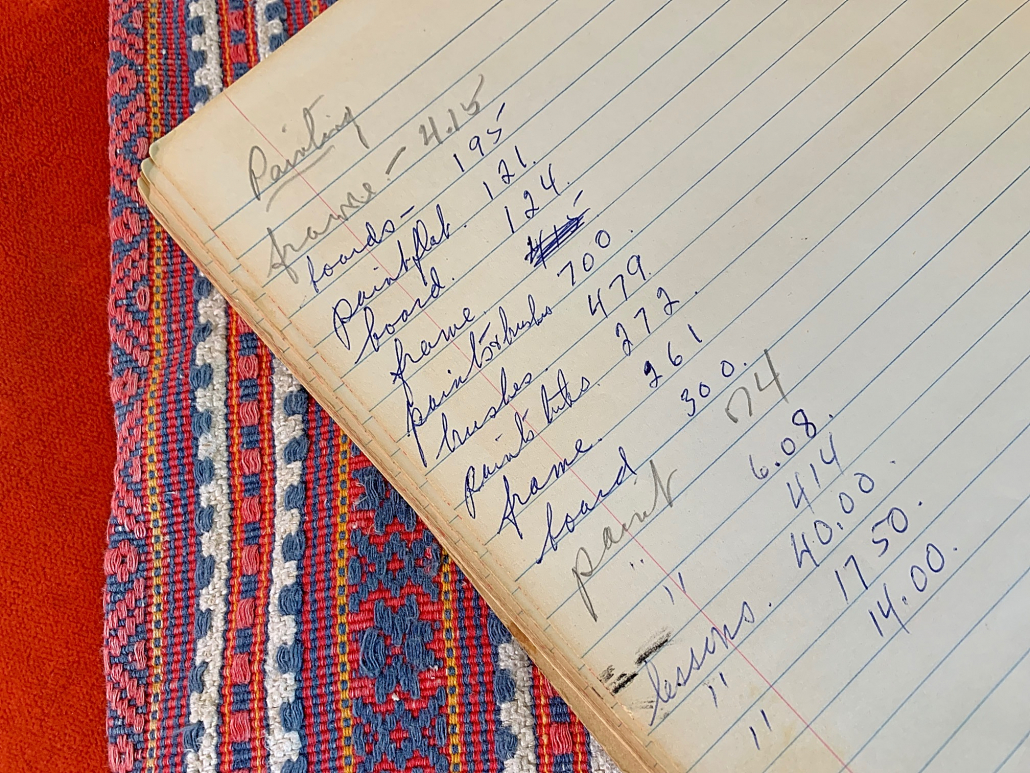 Painting
frame. - 4.15
boards - 195
paint plat. 121.
board. 124.
frame.
paints & brushes 700.
brushes 479.
paints tubes. 272.
frame. 261
board 300.
paint .74
" 6.08.
" 414
lessons. 40.00.
" 17 50.
" 14.00.